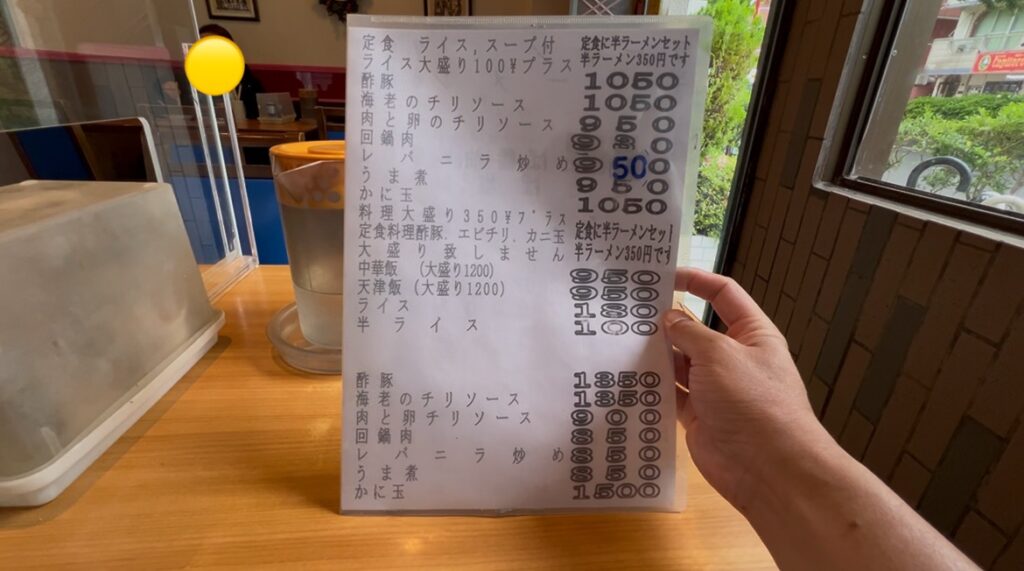 定食 ライス,スープ付 定食に半ラーメンセット
ライス大盛り100¥プラス 半ラーメン350円です
酢豚 1050
海老のチリソース 1050
肉と卵のチリソース 950
回鍋肉
レバニラ炒め 950
うま煮 950
かに玉 1050
料理大盛り350¥プラス
定食料理酢豚.エビチリ.カニ玉 定食に半ラーメンセット
大盛り致しません 半ラーメン350円です
中華飯 (大盛り1200) 950
天津飯 (大盛り1200) 950
ライス
半ライス 100
酢豚 1350
海老のチリソース 1350
肉と卵チリソース 900
回鍋肉 850
レバニラ炒め 850
うま煮 850
かに玉 1500